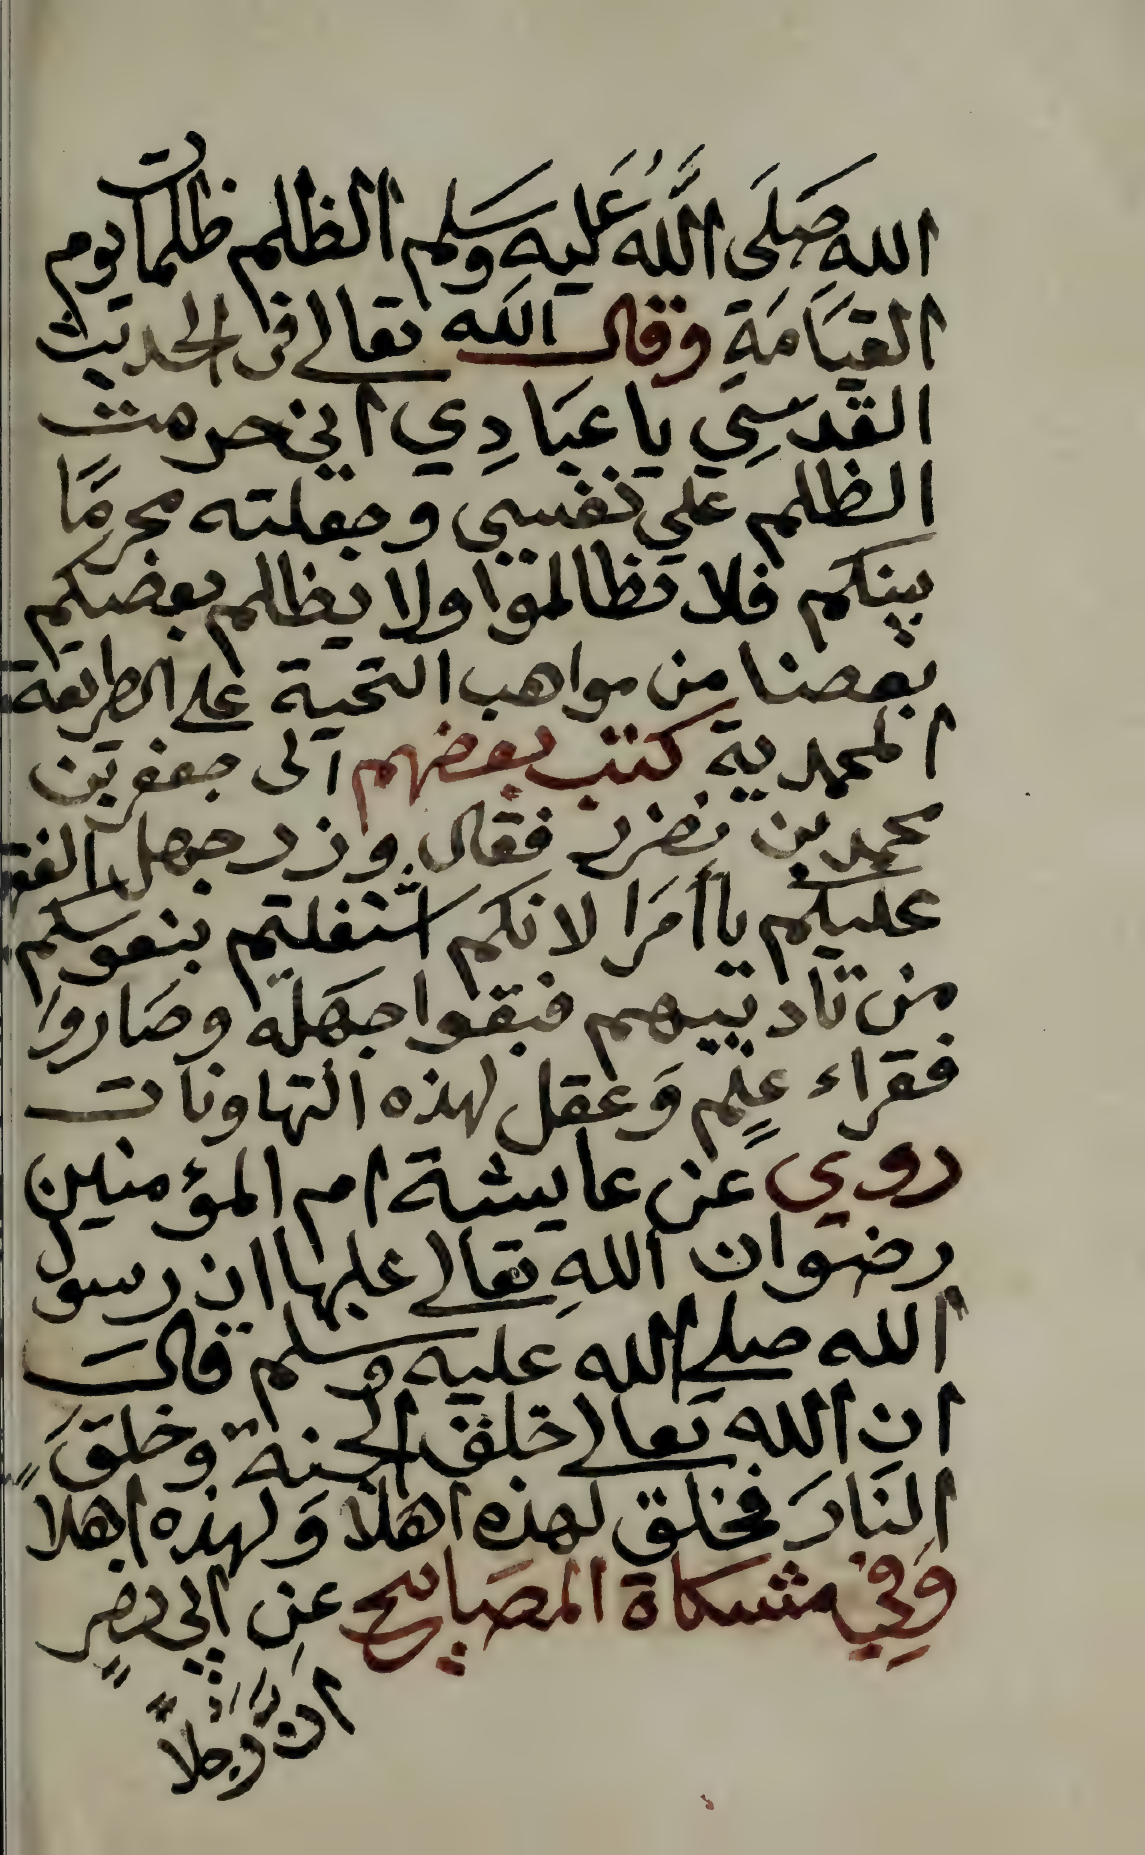 الله صَلَى اللَّه عَليه وَسَلم الظلم ظلمات يوم
القيَامَةِ وقال الله تعالى في الحديث
القدسِي يا عبَادِي اني حرمت
الظلم علي نفسي وجعلته محرمًا
بينكم فلا تظالموا ولا يظلم بعضكم
بعضنا من مواهب التحية على الطريقة
المحمدية كتب بعضهم الى جعفر بن
محمد بن فقال وزر جهل
عليكم يا أمَرا لانكم اشتغلتم بنفوسكم
من تاديبهم فبقوا جهَله وصَاروا
فقراء عِلمٍ وَعقل لهذه التهاونات
روي عن عايشة ام المؤمنين
رضوان اللهِ تعالى عليها ان رسول
الله صلى الله عليه وسلم قالَ
ان الله تعالى خلق الجنة وخلقَ
النَارَ فخلق لهذه اهلًا وَلهذه اهلا
وَفِي مشكاة المصابيح عن ابي نضرٍ
ان رَجلاً